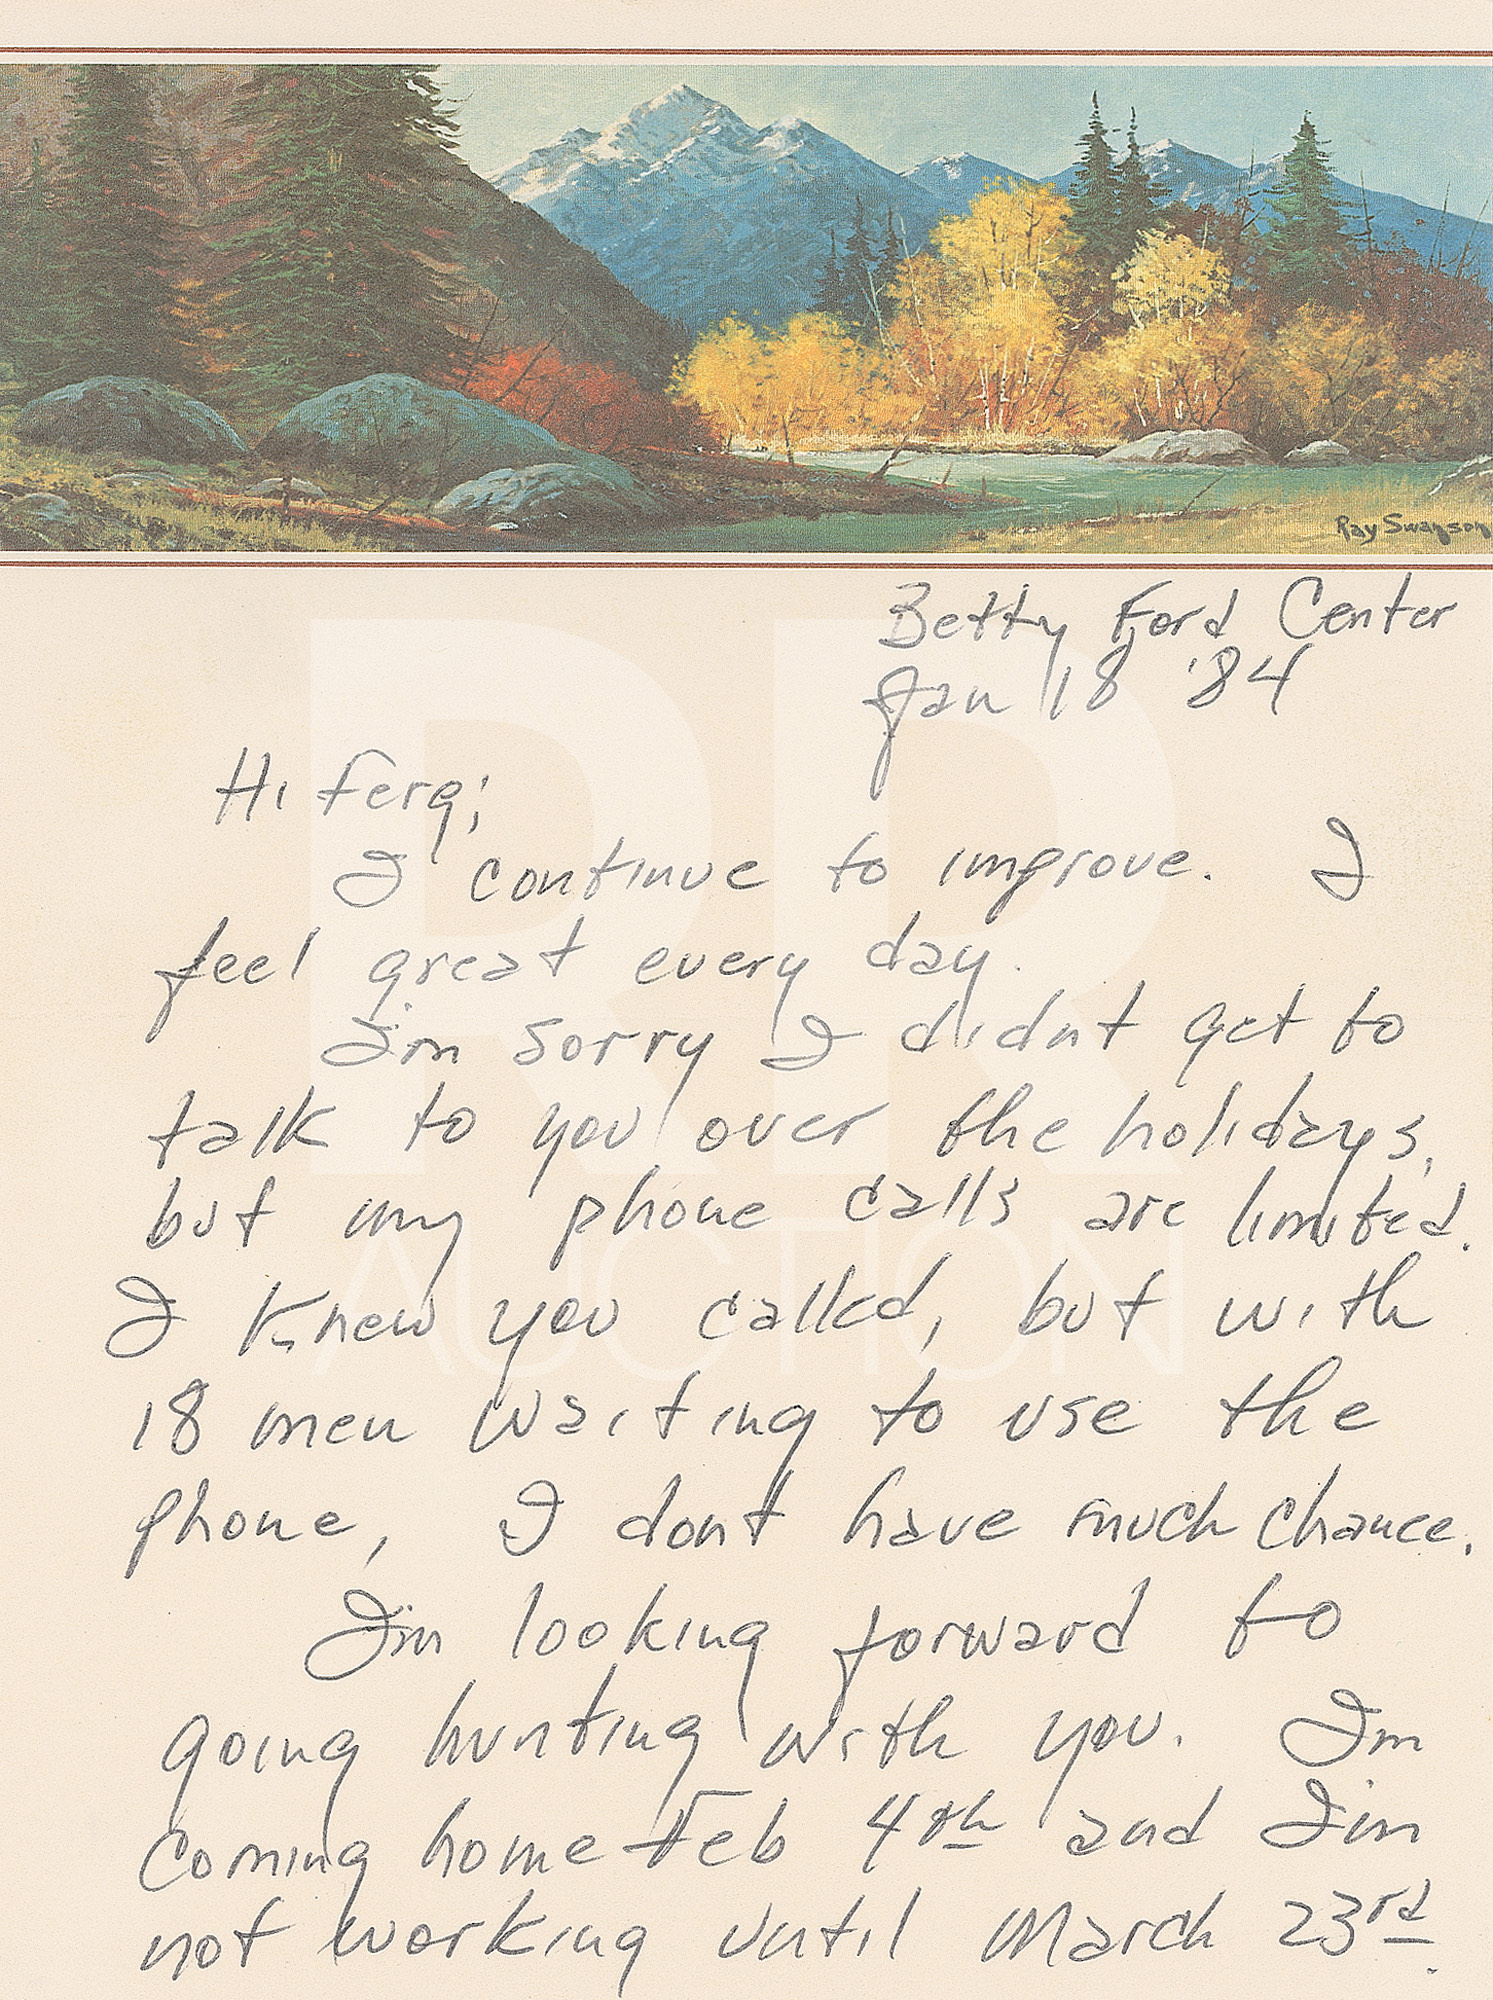 Ray Swanson
Betty Ford Center
Jan 18 '84
Hi Ferg;
I continue to improve. I
feel great every day.
I'm sorry I didnt get to
talk to you over the holidays,
but my phone calls are limited.
I knew you called, but with
18 men waiting to use the
phone, I dont have much chance.
I'm looking forward to
going hunting with you. Im
coming home Feb 4th and I'm
not working until March 23rd.
RR
AUCTION